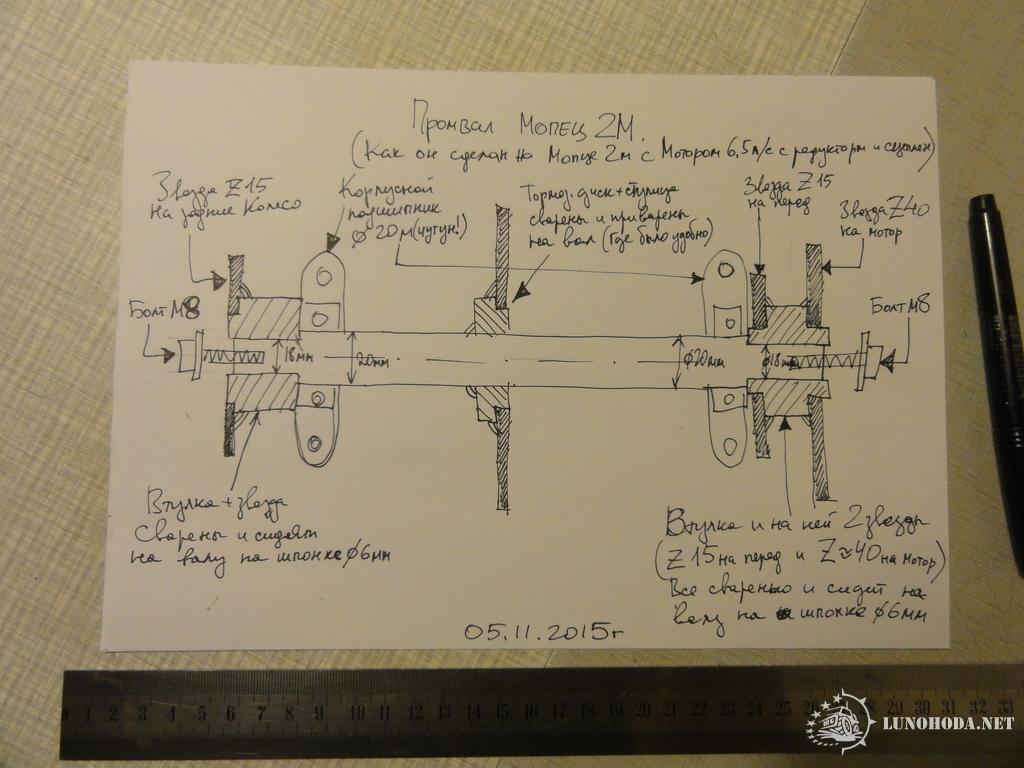 Промвал Мопец 2М.
(Как он сделан на Мопце 2м с Мотором 6,5 л/с с редукторм и сцеплен)
Звезда Z15
на задние Колесо
Корпусной
подшипник
ϕ 20м (чугун!)
Тормоз. диск + ступица
сварены и приварены
на вал (где было удобно)
Звезда Z15
на перед
Звезда Z40
на мотор
Болт М8
Болт М8
18мм
20мм
ϕ20мм
ϕ18мм
Втулка + звезда
Сварены и сидят
на валу на шпонке ϕ6мм
Втулка и на ней 2 звезды
(Z 15 на перед и Z≈40 на мотор)
Все сварено и сидит на
валу на шпонке ϕ6мм
05.11.2015г
0 1 2 3 4 5 6 7 8 9 10 11 12 13 14 15 16 17 18 19 20 21 22 23 24 25 26 27 28 29 30 31 32 33
LUNOHODA.NET